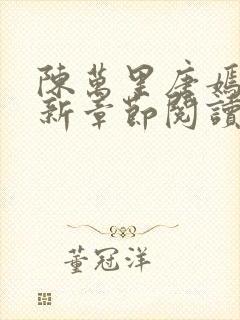 陳萬里唐嫣
新章節閱讀
董冠洋